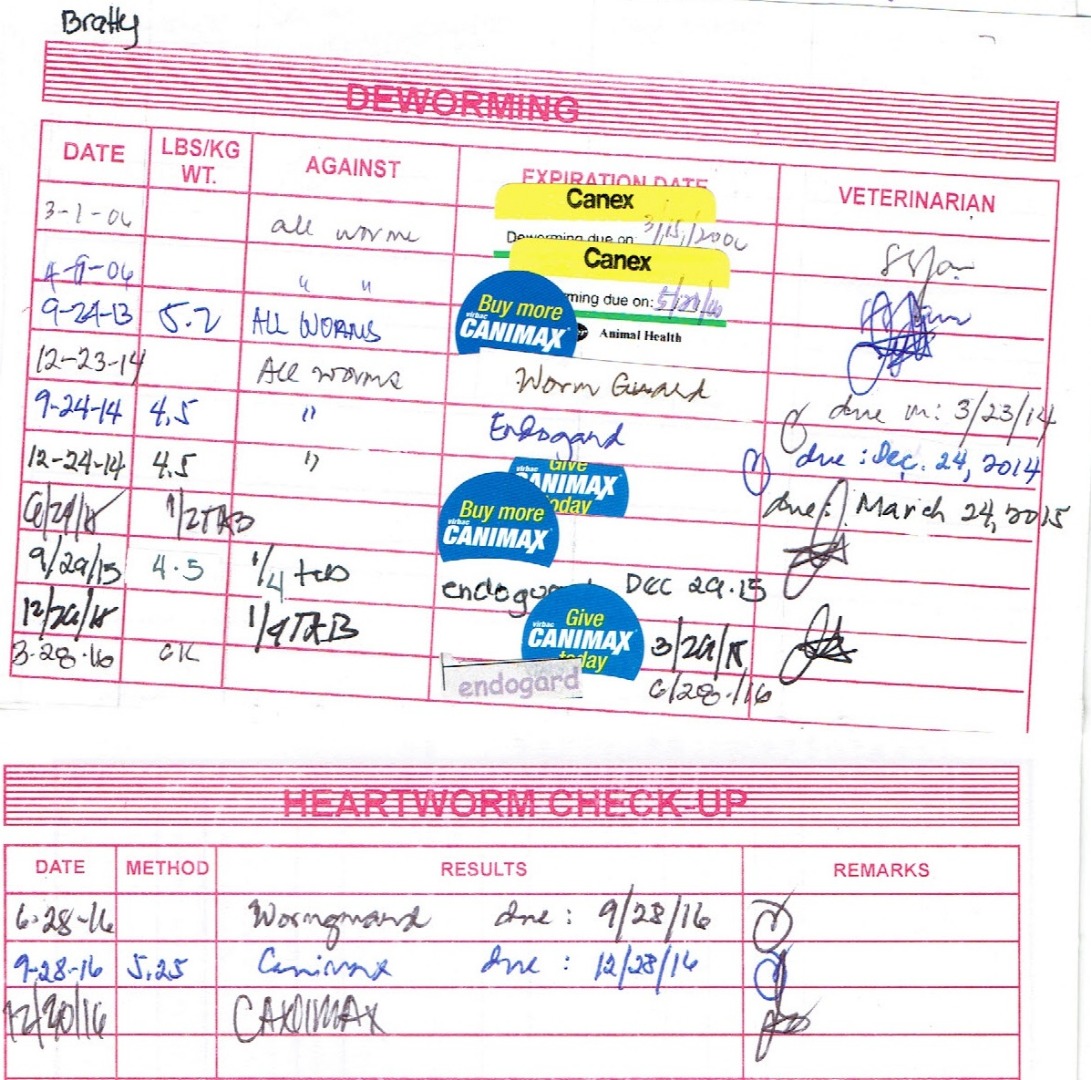 Bratty
DEWORMING
DATE LBS/KG WT. AGAINST EXPIRATION DATE VETERINARIAN
3-1-06 all worms Canex Deworming due on: 3/15/2006
4-8-06 " " Canex ming due on:
Buy more virbac CANIMAX Animal Health
9-24-13 5.2 ALL WORMS
12-23-14 All worms Worm Guard due on: 3/23/14
9-24-14 4.5 " Endogard due: Dec. 24, 2014
12-24-14 4.5 " Give virbac CANIMAX today due: March 24, 2015
6/29/15 1/2 TAB Buy more virbac CANIMAX
9/29/15 4.5 1/4 tab endogua DEC 29.15
12/29/15 1/4 TAB Give virbac CANIMAX today 3/29/15
3-28-16 OK endogard 6/28/16
HEARTWORM CHECK-UP
DATE METHOD RESULTS REMARKS
6-28-16 Wormguard due: 9/28/16
9-28-16 5.25 Canimax due: 12/28/16
12/20/16 CANIMAX